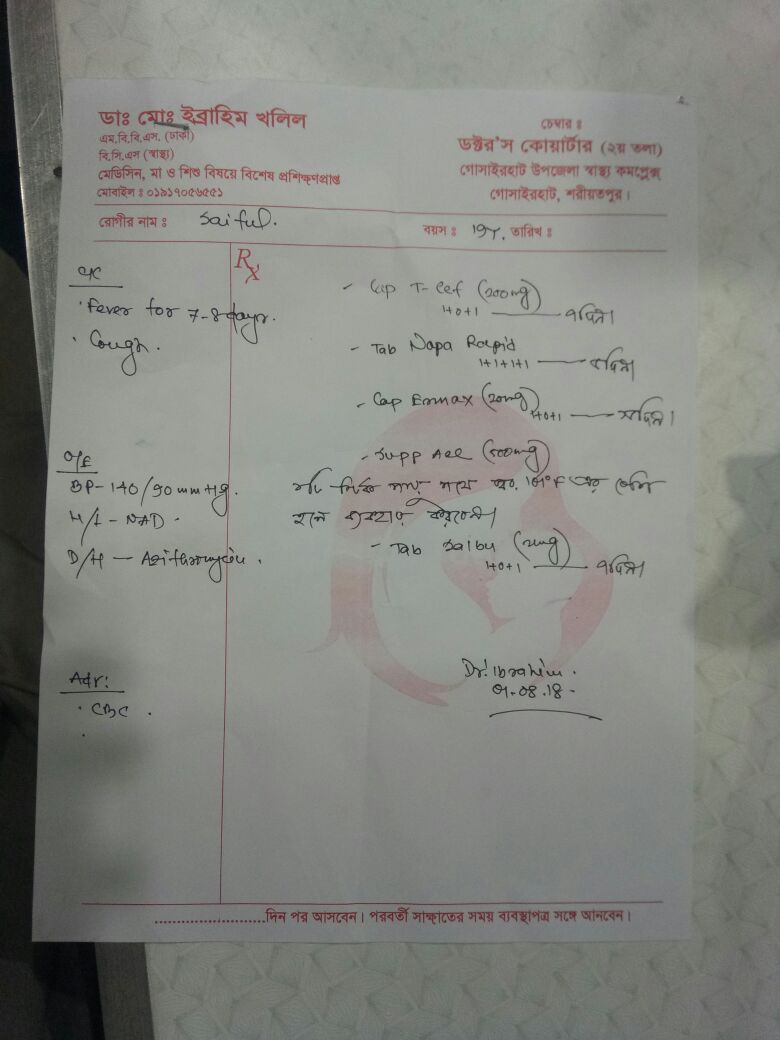 ডাঃ মোঃ ইব্রাহিম খলিল
এম.বি.বি.এস. (ঢাকা)
বি.সি.এস (স্বাস্থ্য)
মেডিসিন, মা ও শিশু বিষয়ে বিশেষ প্রশিক্ষণপ্রাপ্ত
মোবাইল ঃ ০১৯১৭০৫৬৫৫১
চেম্বার ঃ
ডক্টর'স কোয়ার্টার (২য় তলা)
গোসাইরহাট উপজেলা স্বাস্থ্য কমপ্লেক্স
গোসাইরহাট, শরীয়তপুর।
রোগীর নাম ঃ Saiful. বয়স ঃ 19Y. তারিখ ঃ
C/C
· Fever for 7-8 days.
· Cough.
O/E
BP-140/90 mmHg.
H/L-NAD.
D/H - Azithromycin.
Adv:
· CBC.
Rx
- Cap T-Cef (200mg)
1+0+1
- Tab Napa Rapid
1+1+1+1
- Cap Emmax (20mg)
1+0+1
- Supp Ace (500mg)
101°F এর বেশি
হলে ব্যবহার করবেন।
- Tab (2mg)
1+0+1
Dr. Ibrahim.
08.18
......................দিন পর আসবেন। পরবর্তী সাক্ষাতের সময় ব্যবস্থাপত্র সঙ্গে আনবেন।